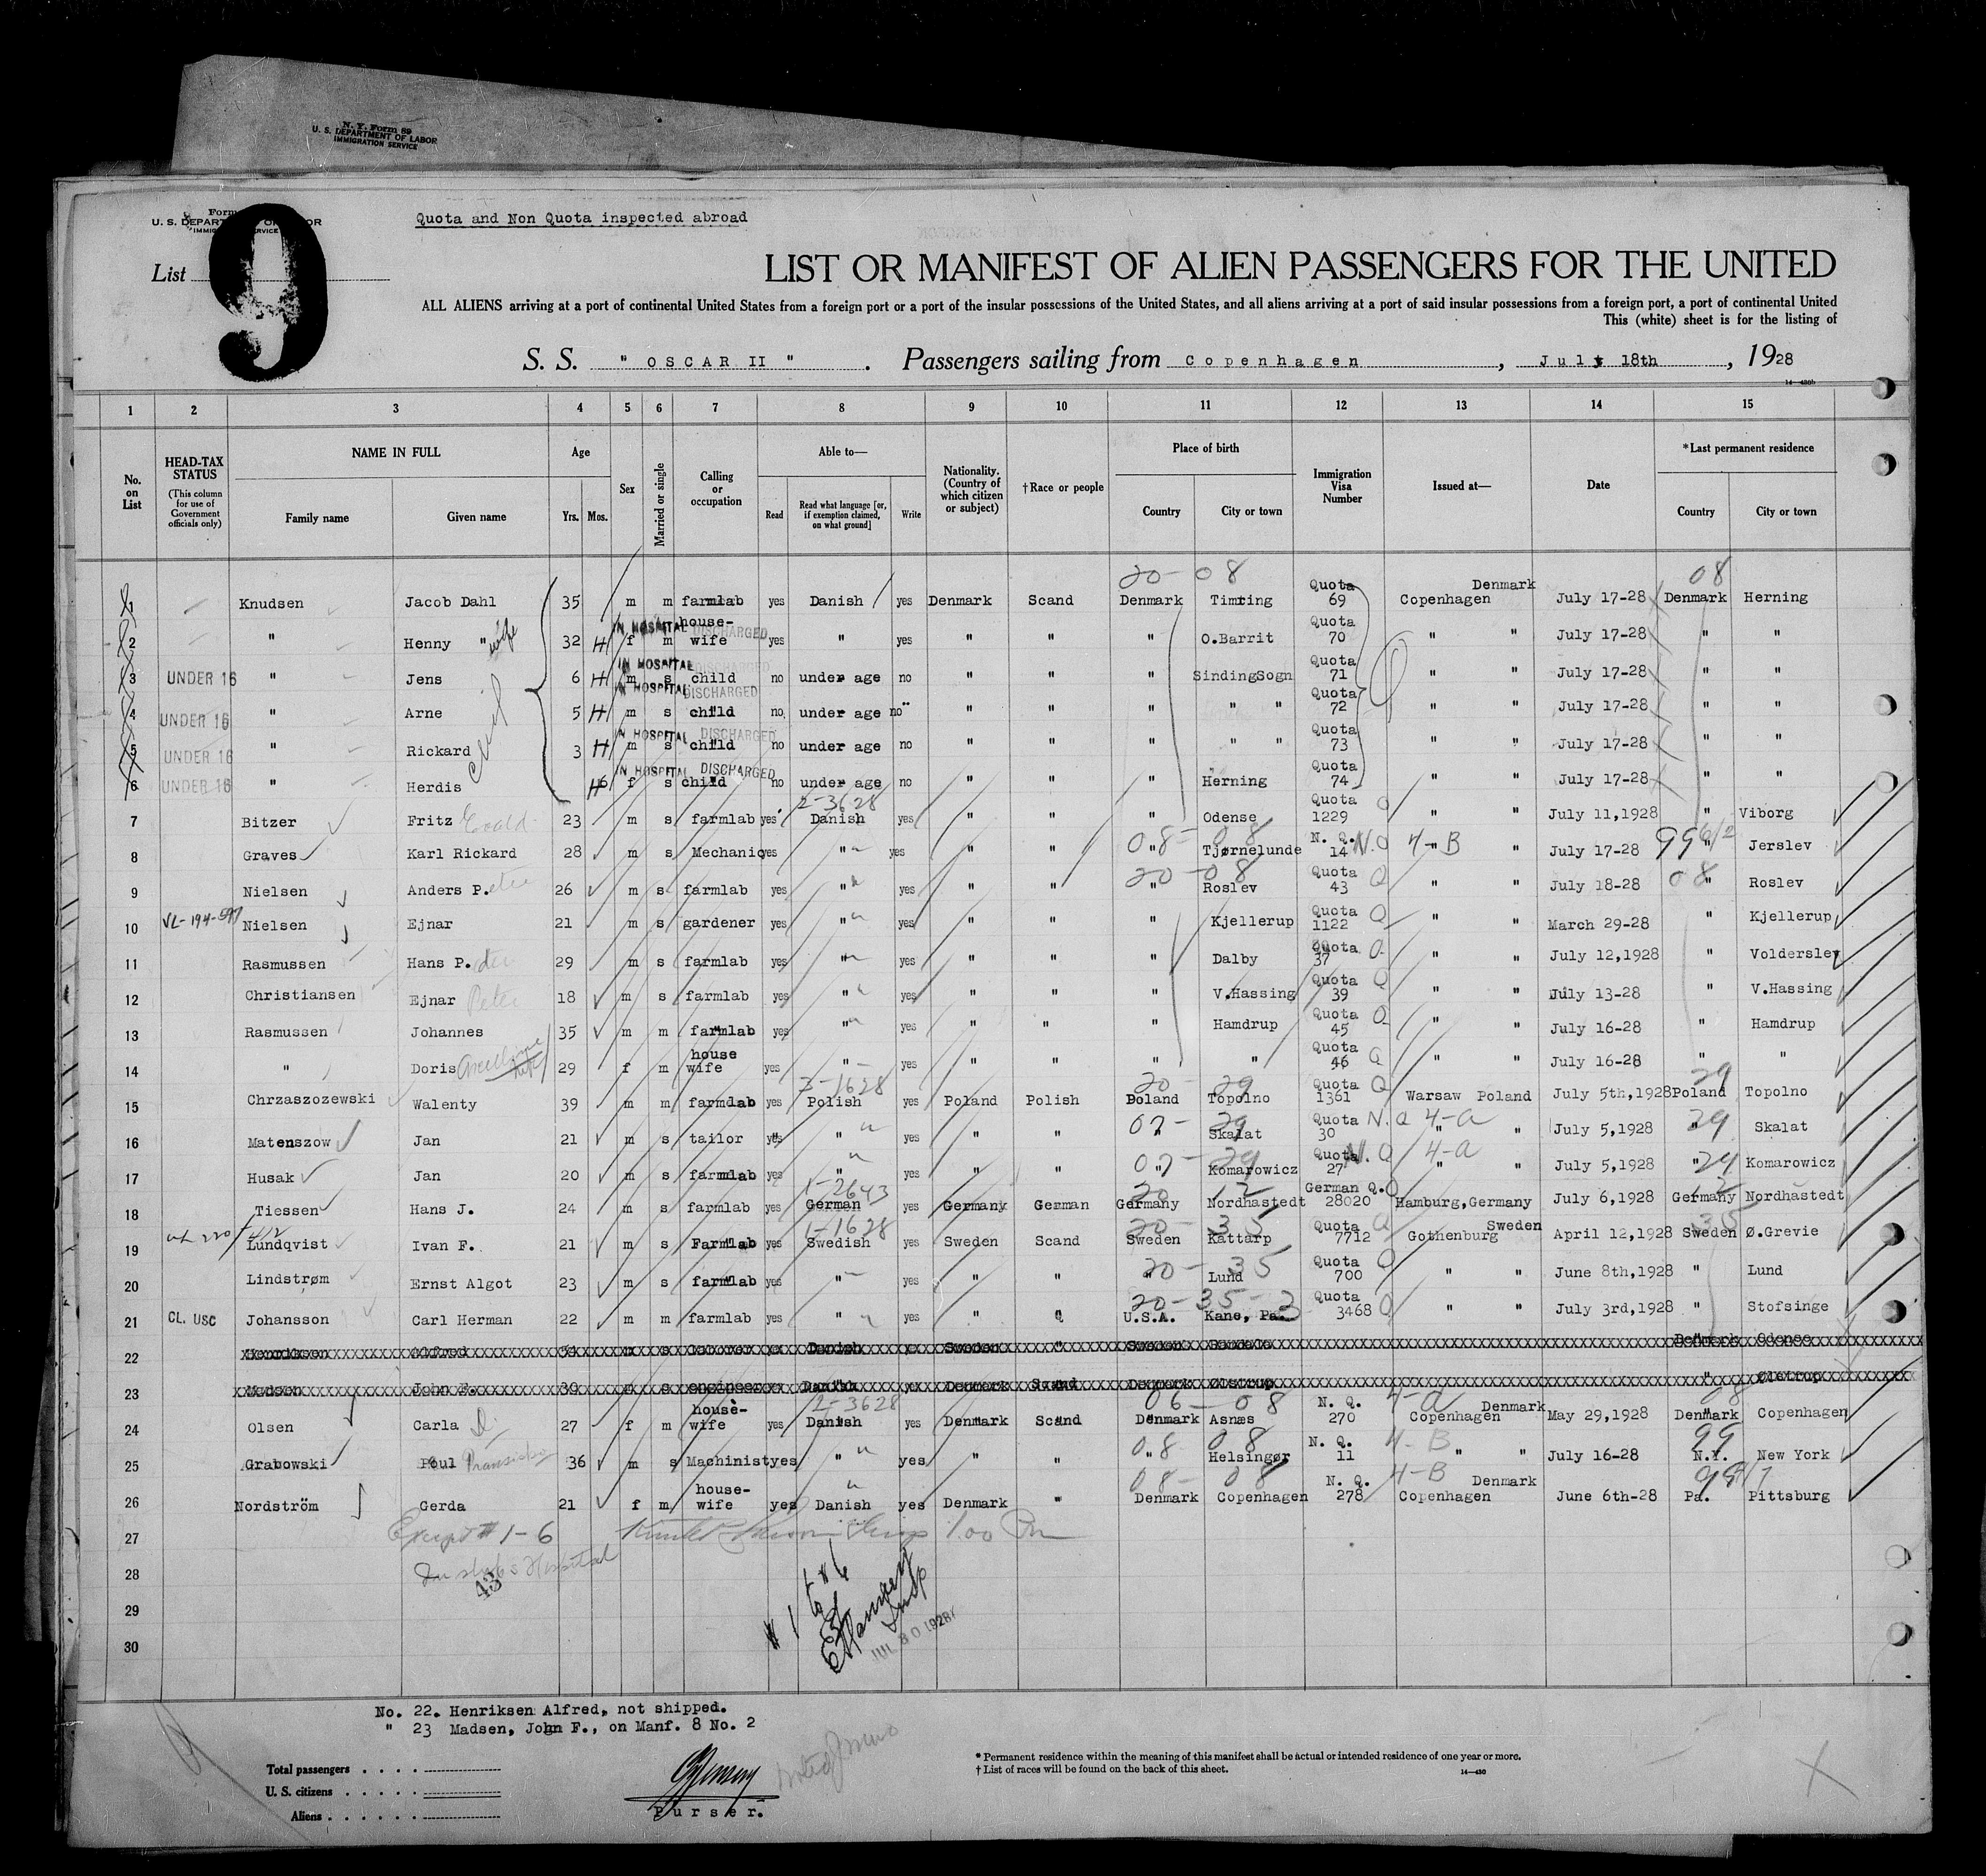 N. Y. Form 89
U. S. DEPARTMENT OF LABOR
IMMIGRATION SERVICE
Form
U. S. DEPARTMENT OF LABOR
IMMIGRATION SERVICE
Quota and Non Quota inspected abroad
List 9
LIST OR MANIFEST OF ALIEN PASSENGERS FOR THE UNITED
ALL ALIENS arriving at a port of continental United States from a foreign port or a port of the insular possessions of the United States, and all aliens arriving at a port of said insular possessions from a foreign port, a port of continental United
This (white) sheet is for the listing of
S. S. " OSCAR II " . Passengers sailing from Copenhagen , July 18th , 1928
1 2 3 4 5 6 7 8 9 10 11 12 13 14 15
No. on List
HEAD-TAX STATUS (This column for use of Government officials only)
NAME IN FULL
Family name Given name
Age
Yrs. Mos.
Sex
Married or single
Calling or occupation
Able to—
Read Read what language [or, if exemption claimed, on what ground] Write
Nationality. (Country of which citizen or subject)
†Race or people
Place of birth
Country City or town
Immigration Visa Number
Issued at—
Date
*Last permanent residence
Country City or town
20-08 08
1 Knudsen Jacob Dahl 35 m m farmlab yes Danish yes Denmark Scand Denmark Timring Quota 69 Copenhagen Denmark July 17-28 Denmark Herning
2 " Henny " wife 32 H f m house-wife yes " yes " " " O.Barrit Quota 70 " " July 17-28 " "
IN HOSPITAL DISCHARGED
3 UNDER 16 " Jens 6 H m s child no under age no " " " SindingSogn Quota 71 " " July 17-28 " "
IN HOSPITAL DISCHARGED
4 UNDER 16 " Arne 5 H m s child no under age no " " " " " Quota 72 " " July 17-28 " "
IN HOSPITAL DISCHARGED
5 UNDER 16 " Rickard 3 H m s child no under age no " " " " " Quota 73 " " July 17-28 " "
IN HOSPITAL DISCHARGED
6 UNDER 16 " Herdis H 6 f s child no under age no " " " Herning Quota 74 " " July 17-28 " "
IN HOSPITAL DISCHARGED
2-3628
7 Bitzer Fritz 23 m s farmlab yes Danish yes " " " Odense Quota 1229 Q " " July 11,1928 " Viborg
8 Graves Karl Rickard 28 m s Mechanic yes " yes " " 08-08 " Tjørnelunde N. Q. 14 N.Q 4-B " " July 17-28 99 " Jerslev
9 Nielsen Anders P.eter 26 m s farmlab yes " yes " " 20-08 " Roslev Quota 43 Q " " July 18-28 08 " Roslev
10 Nielsen Ejnar 21 m s gardener yes " yes " " " Kjellerup Quota 1122 Q " " March 29-28 " Kjellerup
11 Rasmussen Hans P. 29 m s farmlab yes " yes " " " Dalby Quota 37 Q " " July 12,1928 " Voldersley
12 Christiansen Ejnar Peter 18 m s farmlab yes " yes " " " V.Hassing Quota 39 Q " " July 13-28 " V.Hassing
13 Rasmussen Johannes 35 m m farmlab yes " yes " " " Hamdrup Quota 45 Q " " July 16-28 " Hamdrup
14 " Doris 29 f m house wife yes " yes " " " " Quota 46 Q " " July 16-28 " "
15 Chrzaszozewski Walenty 39 m m farmlab yes Polish yes Poland Polish 20-29 Poland Topolno Quota 1361 Q Warsaw Poland July 5th,1928 29 Poland Topolno
16 Matenszow Jan 21 m s tailor yes " yes " " 07-29 " Skalat Quota 30 N.Q 4-a " " July 5,1928 29 " Skalat
17 Husak Jan 20 m s farmlab yes " yes " " 07-29 " Komarowicz Quota 27 N.Q 4-a " " July 5,1928 29 " Komarowicz
1-2643
18 Tiessen Hans J. 24 m s farmlab yes German yes Germany German 20 12 Germany Nordhastedt German Q. 28020 Hamburg,Germany July 6,1928 12 Germany Nordhastedt
1-1628
19 Lundqvist Ivan F. 21 m s Farmlab yes Swedish yes Sweden Scand 20-35 Sweden Kattarp Quota 7712 Q Gothenburg Sweden April 12,1928 35 Sweden Ø.Grevie
20 Lindstrøm Ernst Algot 23 m s farmlab yes " yes " " 20-35 " Lund Quota 700 Q " " June 8th,1928 " Lund
21 CL. USC Johansson Carl Herman 22 m m farmlab yes " yes " " 20-35-3 U.S.A. Kane, Pa. Quota 3468 Q " " July 3rd,1928 " Stofsinge
22 Henriksen Alfred m s laborer Danish Sweden " Sweden Denmark Odense
23 Madsen John F. 30 m s engineer Danish Denmark Scand Denmark Ølstrup " Ølstrup
2-3628
24 Olsen Carla 27 f m house-wife yes Danish yes Denmark Scand 06-08 Denmark Asnæs N. Q. 270 4-a Copenhagen Denmark May 29,1928 08 Denmark Copenhagen
25 Grabowski Poul 36 m s Machinist yes " yes " " 08 08 " Helsingør N. Q. 11 4-B " " July 16-28 99 N.Y. New York
26 Nordström Gerda 21 f m house-wife yes Danish yes Denmark " 08-08 Denmark Copenhagen N. Q. 278 4-B Copenhagen Denmark June 6th-28 Pa. Pittsburg
27 Except # 1-6 1.00 Pm
28 Hospital
43
29
30
# 1 to # 6
Insp
JUL 30 1928
No. 22. Henriksen Alfred, not shipped.
" 23 Madsen, John F., on Manf. 8 No. 2
Total passengers . . . .
U. S. citizens . . . . .
Aliens . . . . . .
Purser.
* Permanent residence within the meaning of this manifest shall be actual or intended residence of one year or more.
† List of races will be found on the back of this sheet.
14—430